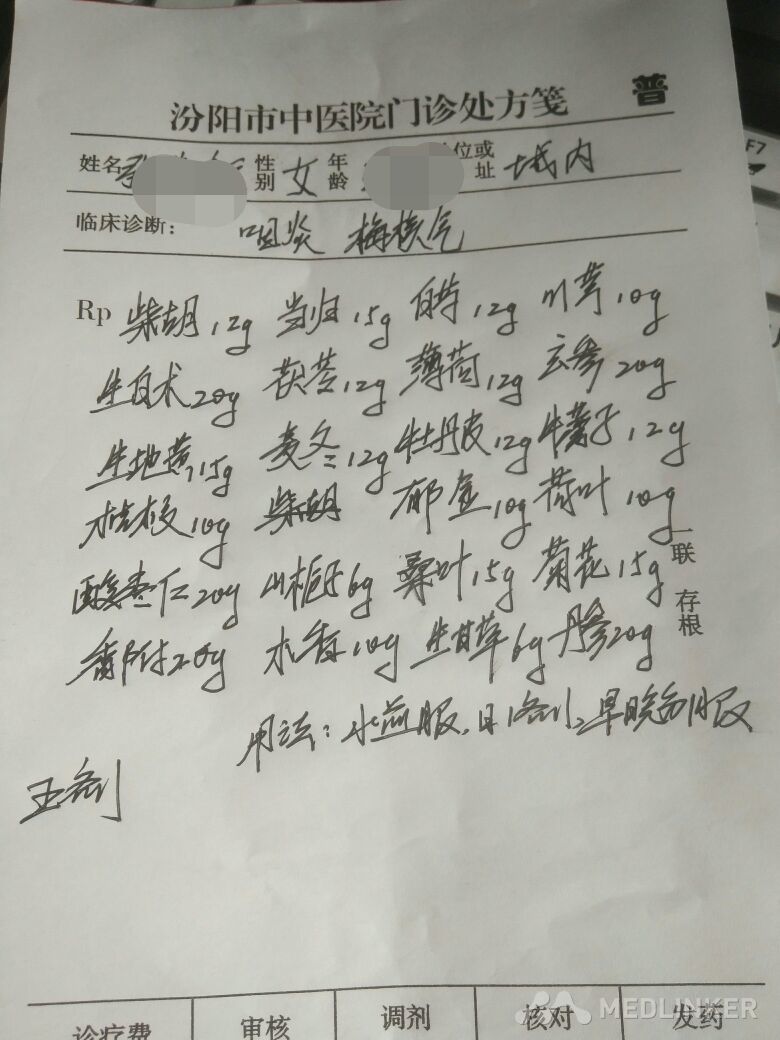 普
汾阳市中医院门诊处方笺
姓名 性别 女 年龄 位或址 城内
临床诊断: 咽炎 梅核气
Rp 柴胡12g 当归15g 白芍12g 川芎10g
生白术20g 茯苓12g 薄荷12g 玄参20g
生地黄15g 麦冬12g 牡丹皮12g 牛蒡子12g
桔梗10g 柴胡 郁金10g 荷叶10g
酸枣仁20g 山栀子6g 桑叶15g 菊花15g
香附20g 木香10g 生甘草6g 丹参20g
一联 存根
用法: 水煎服,日1剂,早晚分服
五剂
诊疗费 审核 调剂 核对 发药
MEDLINKER
F7